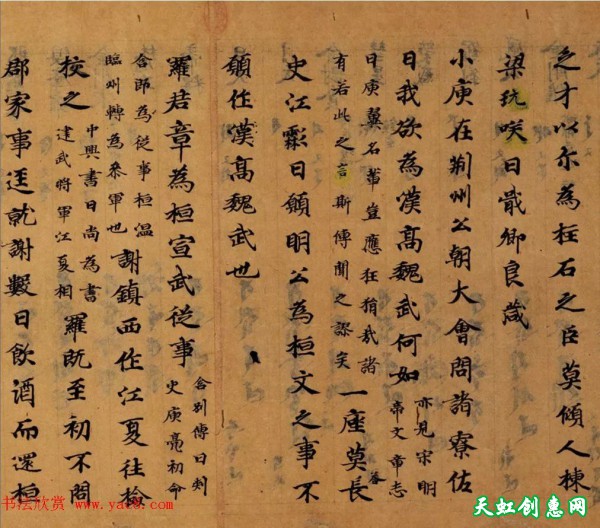 之才以尒為柱石之臣莫傾人棟
梁玩咲曰戢卿良箴
小庾在荊州公朝大會問諸寮佐
曰我欲為漢高魏武何如 亦見宋明
帝文章志
曰庾翼名輩豈應狂狷哉諸
有若此之言斯傳聞之謬矣 一座莫荅長
史江虨曰願明公為桓文之事不
願作漢高魏武也
羅君章為桓宣武從事 含別傳曰刾
史庾亮初命
含部為從事桓温
臨州轉為叅軍也 謝鎮西作江夏往檢
挍之 中興書曰尚為書
建武將軍江夏相 羅既至初不問
郡家事逕就謝數日飲酒而還桓
书法欣赏 www.yac8.com
天虹创惠网